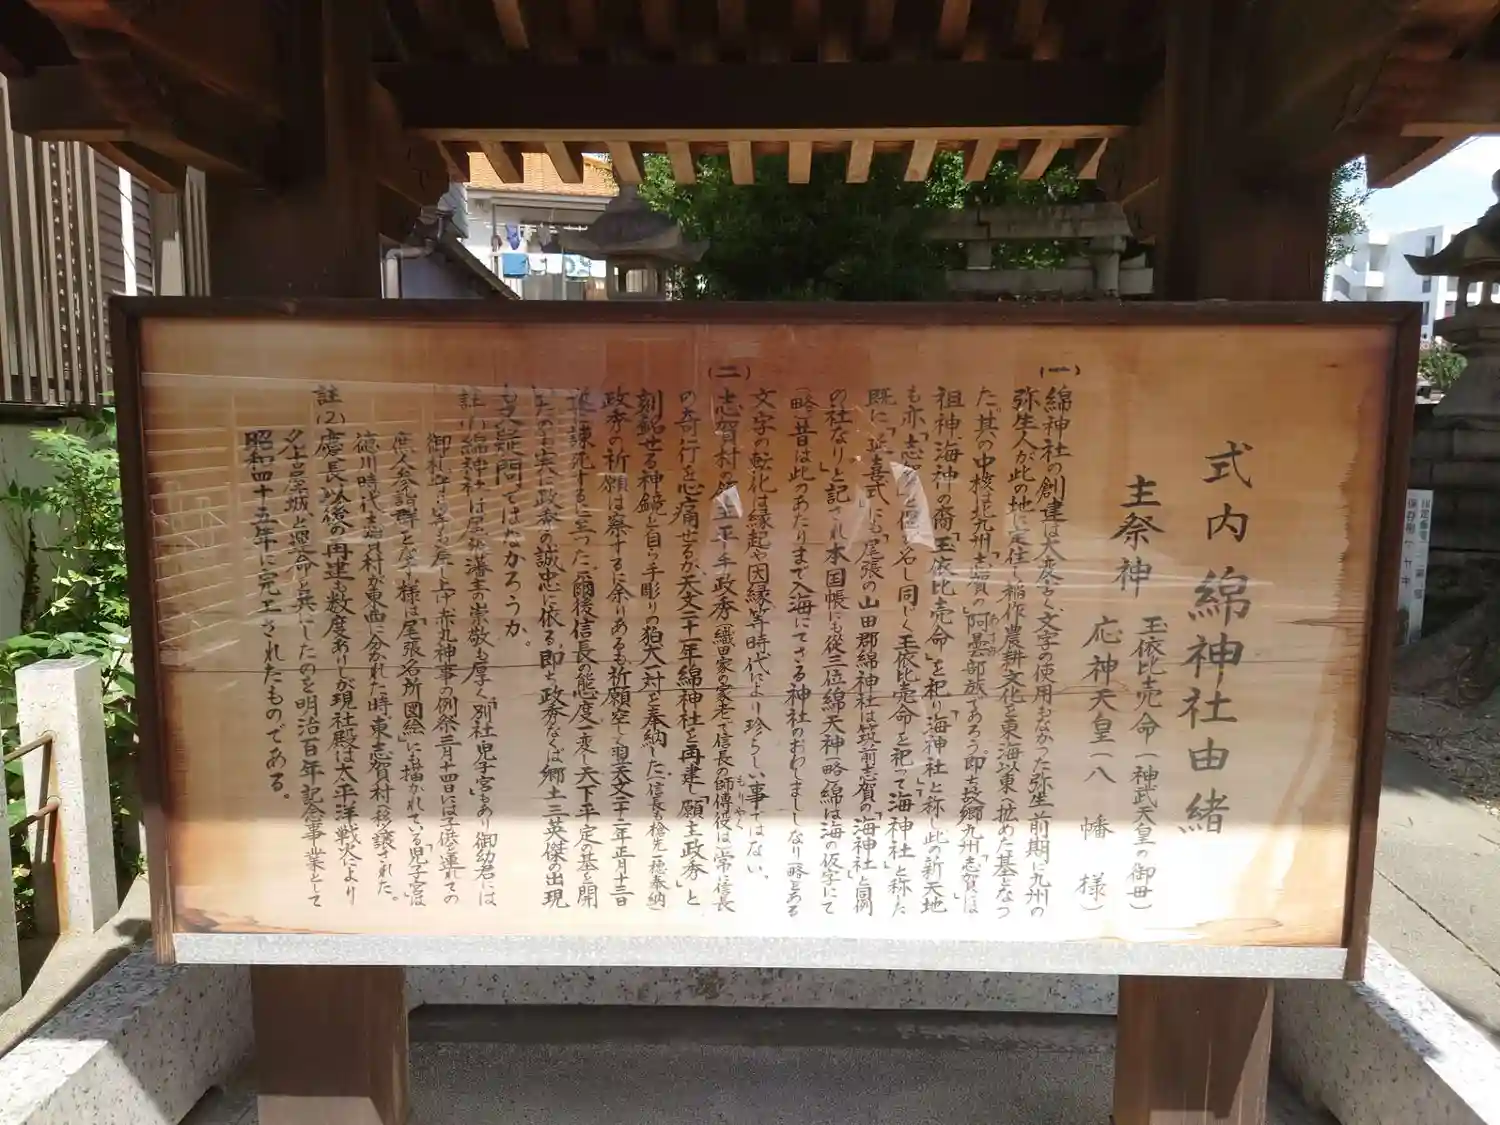 式内綿神社由緒
主祭神 玉依比売命(神武天皇の御母)
応神天皇(八幡様)
(一)
綿神社の創建は大変古く文字の使用おなかった弥生前期に九州の
弥生人が此の地に定住し稲作農耕文化を東海以東へ拡めた基となつ
た。其の中核は北九州「志賀の」阿曇部族であろう。即ち故郷九州「志賀」は
祖神、海神の裔「玉依比売命」を祀り「海神社」と称し此の新天地
も亦「志賀」と 名し同じく玉依比売命を祀って海神社」と称した
既に「延喜式」にも「尾張の山田郡綿神社は筑前志賀の「海神社」と同例
の社なり」と記され本国帳にも従三位綿天神(略)綿は海の仮字にて
(略)昔は此のあたりまで入海にてさる神社のおわしまししなり(略)とある
文字の転化は縁起や因縁等時代により珍らしい事ではない。
(二)
志賀村 主平手政秀(織田家の家老で信長の師傅役)は常に信長
もりやく
の奇行を心痛せるが天文二十一年綿神社を再建し「願主政秀」と
刻銘せる神鏡と自ら手彫りの狛犬一対を奉納した(信長も槍先一穂奉納)
政秀の祈願は察するに余りあるも祈願空しく翌天文二十二年正月十三日
遂に諌死するに至った。爾後信長の態度一変し天下平定の基を開
いたのも実に政秀の誠忠に依る、即ち政秀なくば郷土三英傑の出現
も又疑問ではなかろうか。
註(1)綿神社は尾張藩主の崇敬も厚く「別社児子宮」もあり御幼君には
徳川時代志賀村が東西に分かれた時、東志賀村へ移譲された。
註(2)慶長以後の再建も数度ありしが現社殿は太平洋戦火により
名古屋城と運命と共にしたのを明治百年記念事業として
昭和四十五年に完工されたものである。